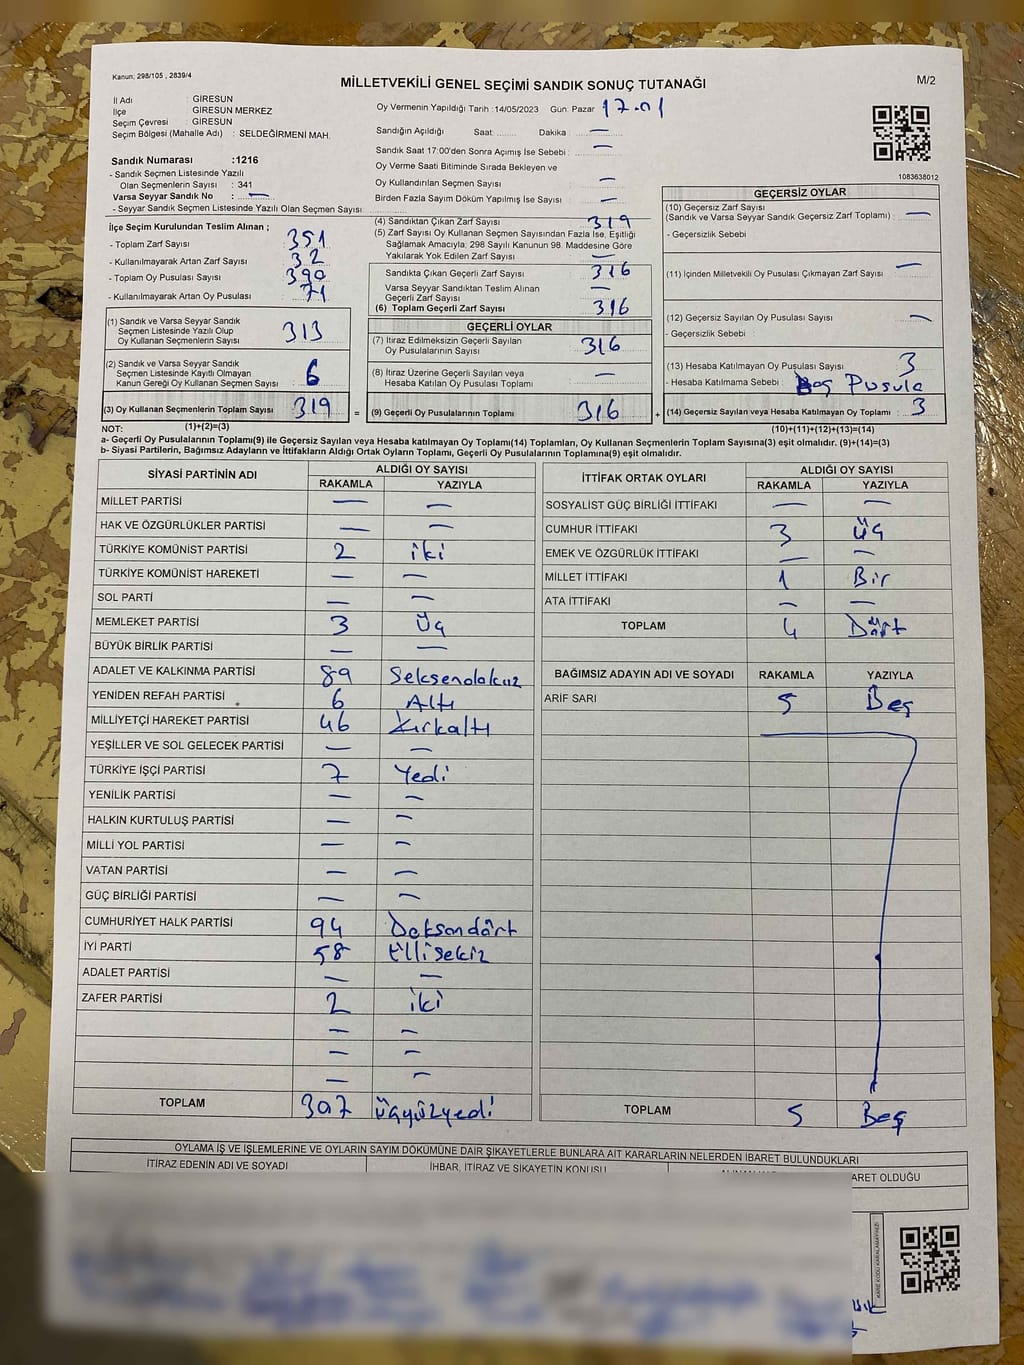 Kanun: 298/105 , 2839/4
MİLLETVEKİLİ GENEL SEÇİMİ SANDIK SONUÇ TUTANAĞI
M/2
İl Adı : GİRESUN
İlçe : GİRESUN MERKEZ
Seçim Çevresi : GİRESUN
Seçim Bölgesi (Mahalle Adı) : SELDEĞİRMENİ MAH.
Sandık Numarası :1216
- Sandık Seçmen Listesinde Yazılı
Olan Seçmenlerin Sayısı : 341
Varsa Seyyar Sandık No : —
- Seyyar Sandık Seçmen Listesinde Yazılı Olan Seçmen Sayısı
Oy Vermenin Yapıldığı Tarih :14/05/2023 Gün: Pazar 17.01
Sandığın Açıldığı Saat:....... Dakika : —
Sandık Saat 17:00'den Sonra Açımış İse Sebebi : —
Oy Verme Saati Bitiminde Sırada Bekleyen ve
Oy Kullandırılan Seçmen Sayısı —
Birden Fazla Sayım Döküm Yapılmış İse Sayısı —
1083638012
İlçe Seçim Kurulundan Teslim Alınan ;
- Toplam Zarf Sayısı : 351
- Kullanılmayarak Artan Zarf Sayısı : 32
- Toplam Oy Pusulası Sayısı : 390
- Kullanılmayarak Artan Oy Pusulası : 71
(1) Sandık ve Varsa Seyyar Sandık
Seçmen Listesinde Yazılı Olup
Oy Kullanan Seçmenlerin Sayısı : 313
(2) Sandık ve Varsa Seyyar Sandık
Seçmen Listesinde Kayıtlı Olmayan
Kanun Gereği Oy Kullanan Seçmen Sayısı : 6
(3) Oy Kullanan Seçmenlerin Toplam Sayısı 319
(4) Sandıktan Çıkan Zarf Sayısı 319
(5) Zarf Sayısı Oy Kullanan Seçmen Sayısından Fazla İse, Eşitliği
Sağlamak Amacıyla, 298 Sayılı Kanunun 98. Maddesine Göre
Yakılarak Yok Edilen Zarf Sayısı —
Sandıkta Çıkan Geçerli Zarf Sayısı 316
Varsa Seyyar Sandıktan Teslim Alınan
Geçerli Zarf Sayısı —
(6) Toplam Geçerli Zarf Sayısı 316
GEÇERLİ OYLAR
(7) İtiraz Edilmeksizin Geçerli Sayılan
Oy Pusulalarının Sayısı 316
(8) İtiraz Üzerine Geçerli Sayılan veya
Hesaba Katılan Oy Pusulası Toplamı —
= (9) Geçerli Oy Pusulalarının Toplamı 316
GEÇERSİZ OYLAR
(10) Geçersiz Zarf Sayısı
(Sandık ve Varsa Seyyar Sandık Geçersiz Zarf Toplamı) : —
- Geçersizlik Sebebi
(11) İçinden Milletvekili Oy Pusulası Çıkmayan Zarf Sayısı —
(12) Geçersiz Sayılan Oy Pusulası Sayısı : —
- Geçersizlik Sebebi :
(13) Hesaba Katılmayan Oy Pusulası Sayısı : 3
- Hesaba Katılmama Sebebi : Boş Pusula
+ (14) Geçersiz Sayılan veya Hesaba Katılmayan Oy Toplamı : 3
NOT: (1)+(2)=(3) (10)+(11)+(12)+(13)=(14)
a- Geçerli Oy Pusulalarının Toplamı(9) ile Geçersiz Sayılan veya Hesaba katılmayan Oy Toplamı(14) Toplamları, Oy Kullanan Seçmenlerin Toplam Sayısına(3) eşit olmalıdır. (9)+(14)=(3)
b- Siyasi Partilerin, Bağımsız Adayların ve İttifakların Aldığı Ortak Oyların Toplamı, Geçerli Oy Pusulalarının Toplamına(9) eşit olmalıdır.
SİYASİ PARTİNİN ADI ALDIĞI OY SAYISI
RAKAMLA YAZIYLA
MİLLET PARTİSİ — —
HAK VE ÖZGÜRLÜKLER PARTİSİ — —
TÜRKİYE KOMÜNİST PARTİSİ 2 iki
TÜRKİYE KOMÜNİST HAREKETİ — —
SOL PARTİ — —
MEMLEKET PARTİSİ 3 üç
BÜYÜK BİRLİK PARTİSİ — —
ADALET VE KALKINMA PARTİSİ 89 Seksendokuz
YENİDEN REFAH PARTİSİ 6 Altı
MİLLİYETÇİ HAREKET PARTİSİ 46 Kırkaltı
YEŞİLLER VE SOL GELECEK PARTİSİ — —
TÜRKİYE İŞÇİ PARTİSİ 7 Yedi
YENİLİK PARTİSİ — —
HALKIN KURTULUŞ PARTİSİ — —
MİLLİ YOL PARTİSİ — —
VATAN PARTİSİ — —
GÜÇ BİRLİĞİ PARTİSİ — —
CUMHURİYET HALK PARTİSİ 94 Doksandört
İYİ PARTİ 58 Ellisekiz
ADALET PARTİSİ — —
ZAFER PARTİSİ 2 iki
— —
— —
— —
TOPLAM 307 üçyüzyedi
İTTİFAK ORTAK OYLARI ALDIĞI OY SAYISI
RAKAMLA YAZIYLA
SOSYALİST GÜÇ BİRLİĞİ İTTİFAKI — —
CUMHUR İTTİFAKI 3 üç
EMEK VE ÖZGÜRLÜK İTTİFAKI — —
MİLLET İTTİFAKI 1 Bir
ATA İTTİFAKI — —
TOPLAM 4 Dört
BAĞIMSIZ ADAYIN ADI VE SOYADI RAKAMLA YAZIYLA
ARİF SARI 5 Beş
TOPLAM 5 Beş
OYLAMA İŞ VE İŞLEMLERİNE VE OYLARIN SAYIM DÖKÜMÜNE DAİR ŞİKAYETLERLE BUNLARA AİT KARARLARIN NELERDEN İBARET BULUNDUKLARI
İTİRAZ EDENİN ADI VE SOYADI İHBAR, İTİRAZ VE ŞİKAYETİN KONUSU ARET OLDUĞU
KARE KODU KARALAMAYINIZ!